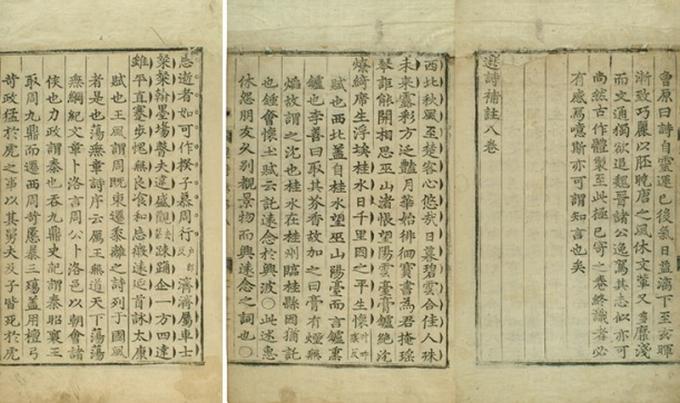 會原曰詩自靈運已後氣日益漓下至玄暉
漸致巧麗以胚晚唐之風休文輩又多靡淺
而文通獨欲追魏晉諸公逸駕其志似亦可
尚然古作體製至此極已寄之卷終識者必
有感焉噫斯亦可謂知言也矣
選詩補註八卷
西北秋風至楚客心悠哉日暮碧雲合佳人殊
未來露彩方泛豔月華始徘徊寶書為君掩瑤
琴詎能開相思巫山渚悵望陽雲臺膏鑪絶沈
燎綺席生浮埃桂水日千里因之平生懷
賦也西北蓋自桂水望巫山陽臺而言鑪熏
鑪也李善曰取其芬香故加之曰膏有煙無
焰故謂之沈也桂水在桂州臨桂縣因猶託
也鍾會懷土賦云託遠念於興波○此述惠
休怨朋友久别覩景物而興遠念之詞也○
志逝者如可作揆子慕周行户郎反濟濟屬車士
粲粲翰墨場瞽夫違盛觀竦踊企一方四達
雖平直蹇步愧無良飡和忘微遠延首詠太康
賦也王風謂周既東遷黍離之詩列于國風
者是也蕩無章詩序云厲王無道天下蕩蕩
無綱紀文章卜洛言周公卜洛邑以朝會諸
侯也力政謂秦也吞九鼎史記謂秦昭襄王
取周九鼎而遷西周苛慝暴三殤蓋用檀弓
苛政猛於虎之事以其舅夫及子皆死於虎